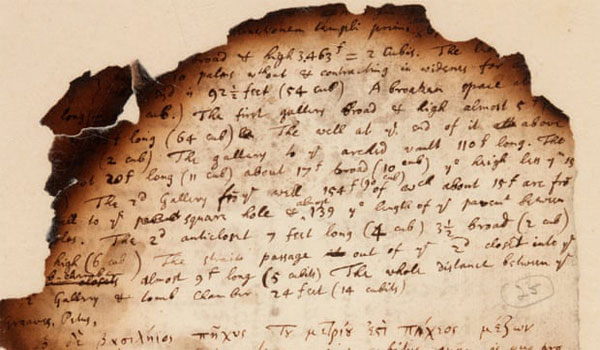 templi
broad & high 3,463f = 2 cubits. The
palms without & contracting in wideness for
is 92½ feet (54 cub) A broaken space
cub.) The first gallery broad & high almost 5
long (64 cub) The well at ye end of it above
2 cub) The gallery to ye arched vault 110f long. The
20f long (11 cub) about 17f broad (10 cub) ye heigh less yn 15
The 2d Gallery from ye well 154f (90 cub) of wch about 15f are from
to ye square hole & almost 139 ye length of ye pavemt between
The 2d anticloset 7 feet long (4 cub) 3½ broad (2 cub)
high (6 cub) The straite passage out of ye 2d closet into ye
almost 9f long (5 cubits) The whole distance between ye
Gallery & tomb chamber 24 feet (14 cubits)
25
Greaves,
πῆχυς τοῦ μετρίου ἐστὶ πήχεος μέζων